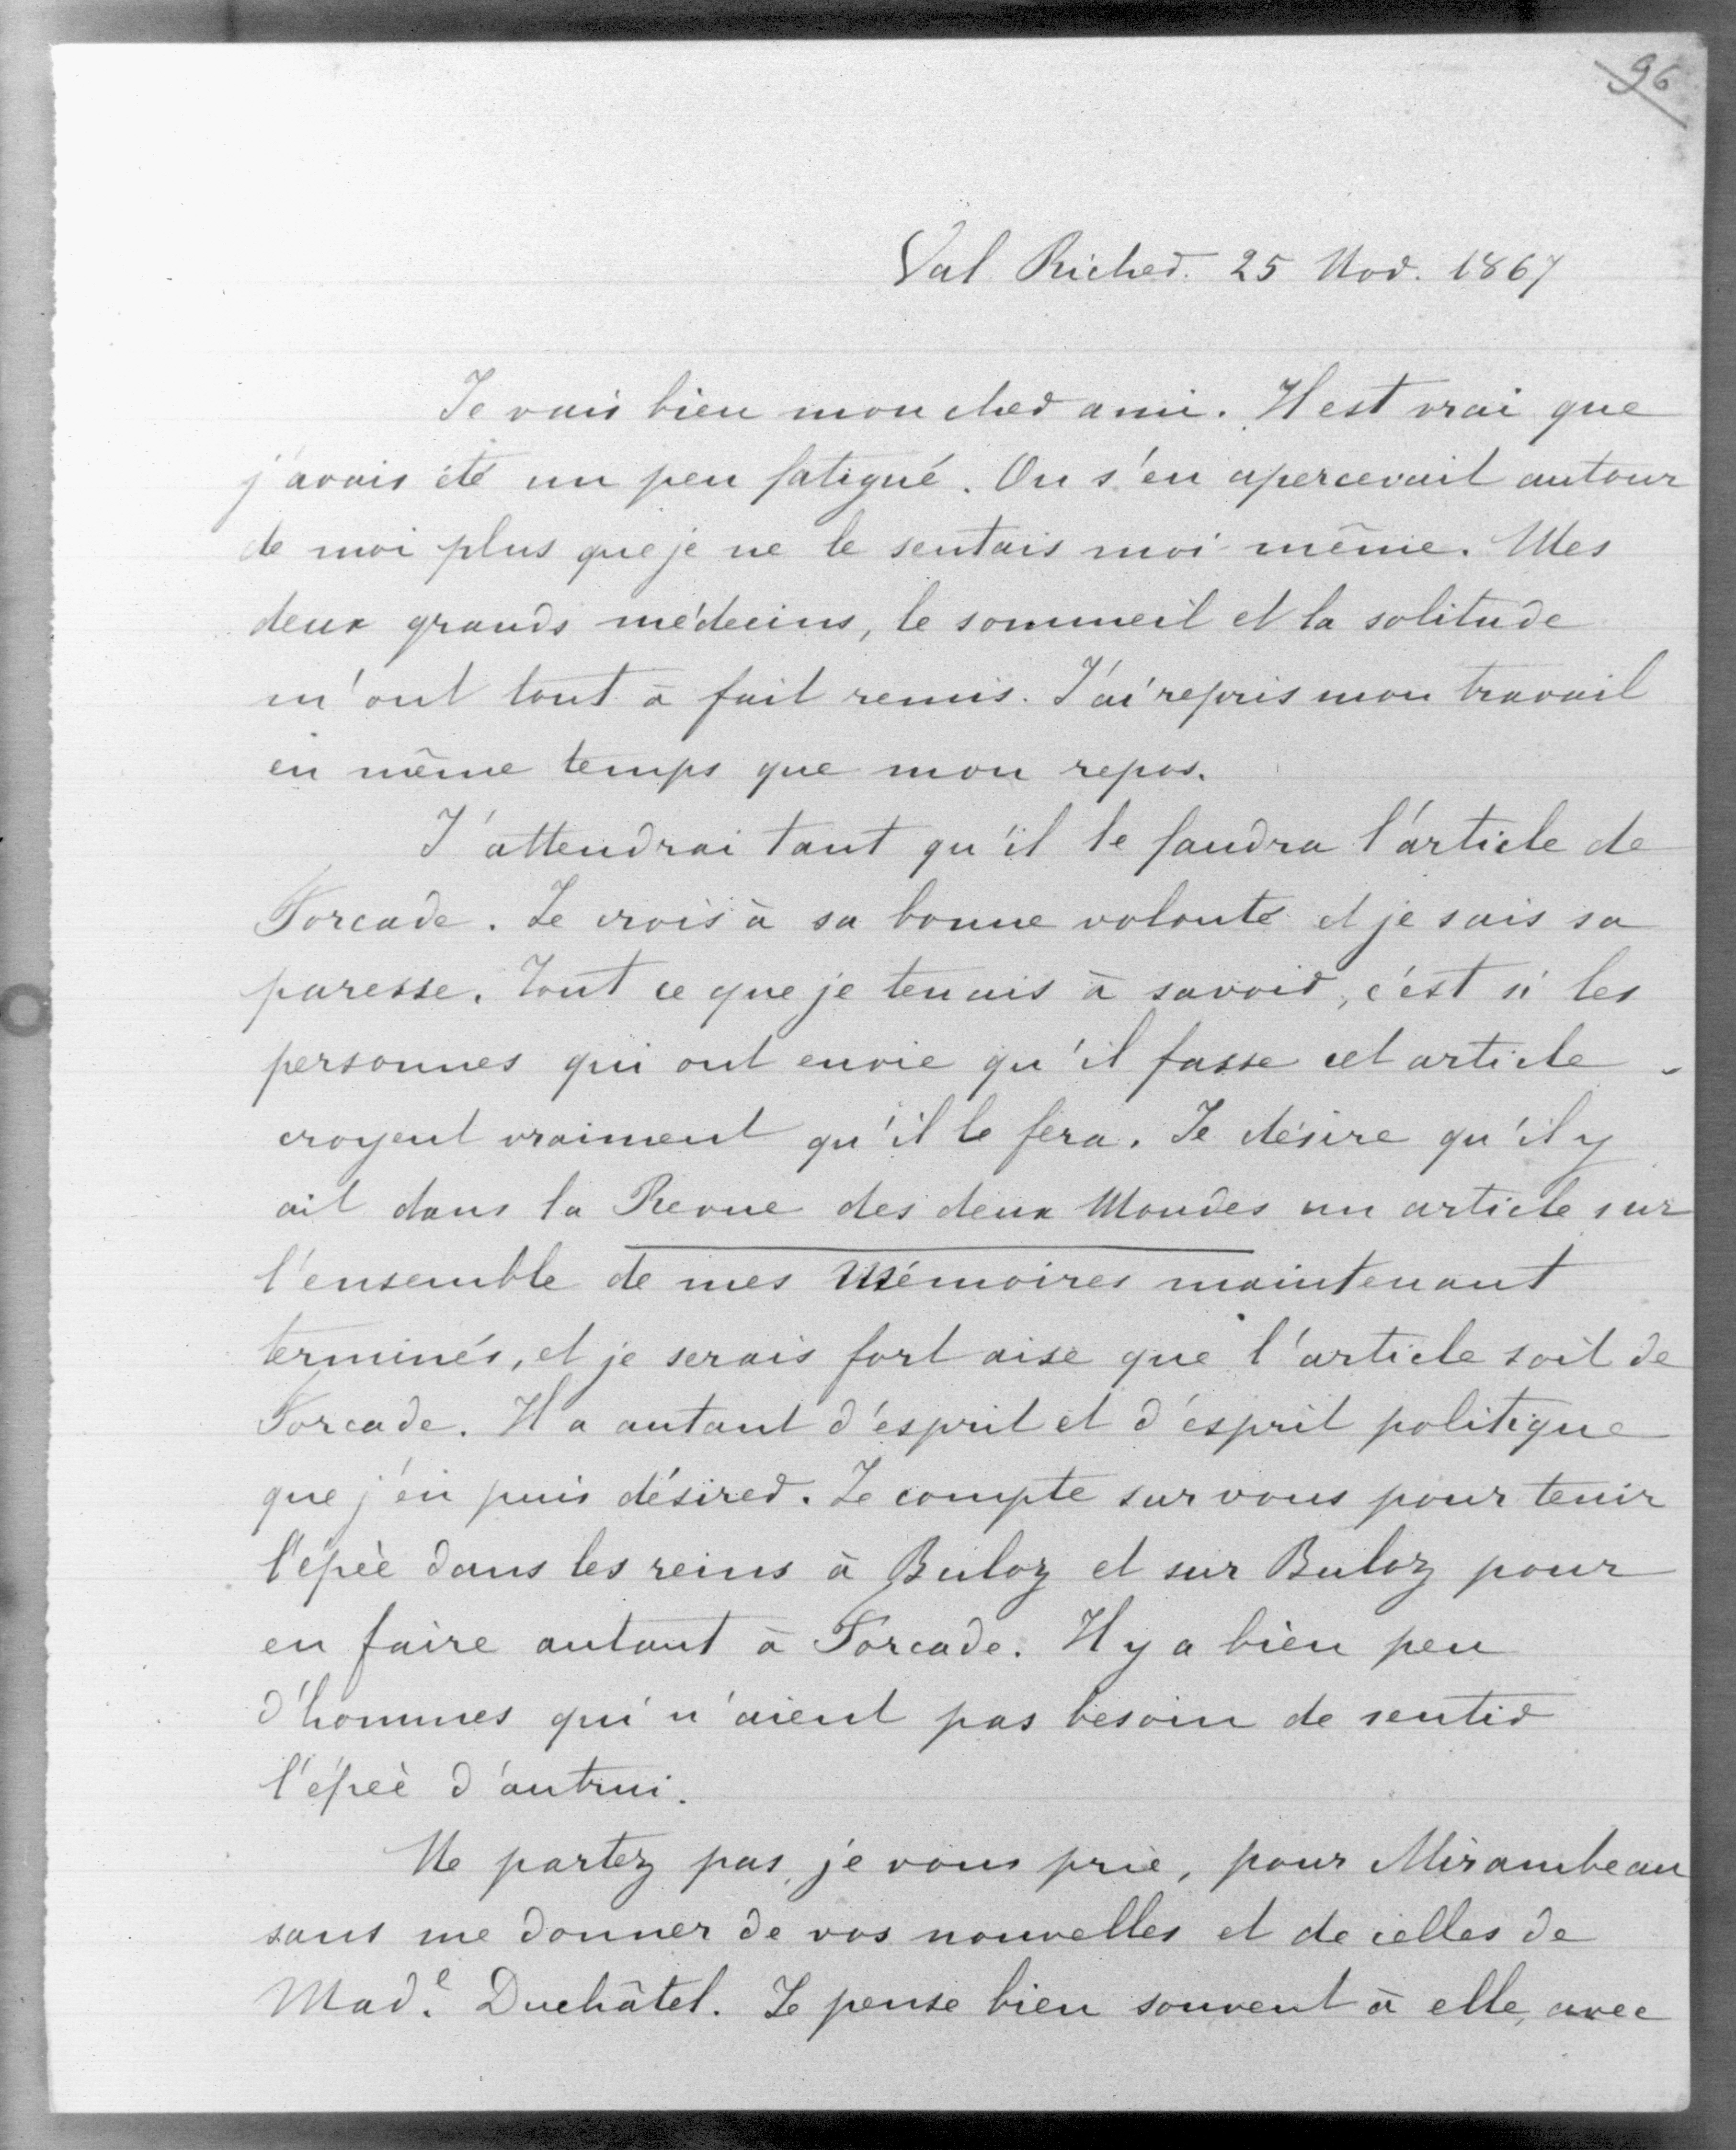 96
Val Richer. 25 Nov. 1867
Je vais bien mon cher ami. Il est vrai que
j'avais été un peu fatigué. On s'en apercevait autour
de moi plus que je ne le sentais moi même. Mes
deux grands médecins, le sommeil et la solitude
m'ont tout à fait remis. J'ai repris mon travail
en même temps que mon repos.
J'attendrai tant qu'il le faudra l'article de
Forcade. Je crois à sa bonne volonté et je sais sa
paresse. Tout ce que je tenais à savoir, c'est si les
personnes qui ont envie qu'il fasse cet article
croyent vraiment qu'il le fera. Je désire qu'il y
ait dans la Revue des deux Mondes un article sur
l'ensemble de mes Mémoires maintenant
terminés, et je serais fort aise que l'article soit de
Forcade. Il a autant d'esprit et d'esprit politique
que j'en puis désirer. Je compte sur vous pour tenir
l'épée dans les reins à Buloz et sur Buloz pour
en faire autant à Forcade. Il y a bien peu
d'hommes qui n'aient pas besoin de sentir
l'épée d'autrui.
Ne partez pas, je vous prie, pour Mirambeau
sans me donner de vos nouvelles et de celles de
Mad.e Duchâtel. Je pense bien souvent à elle, avec